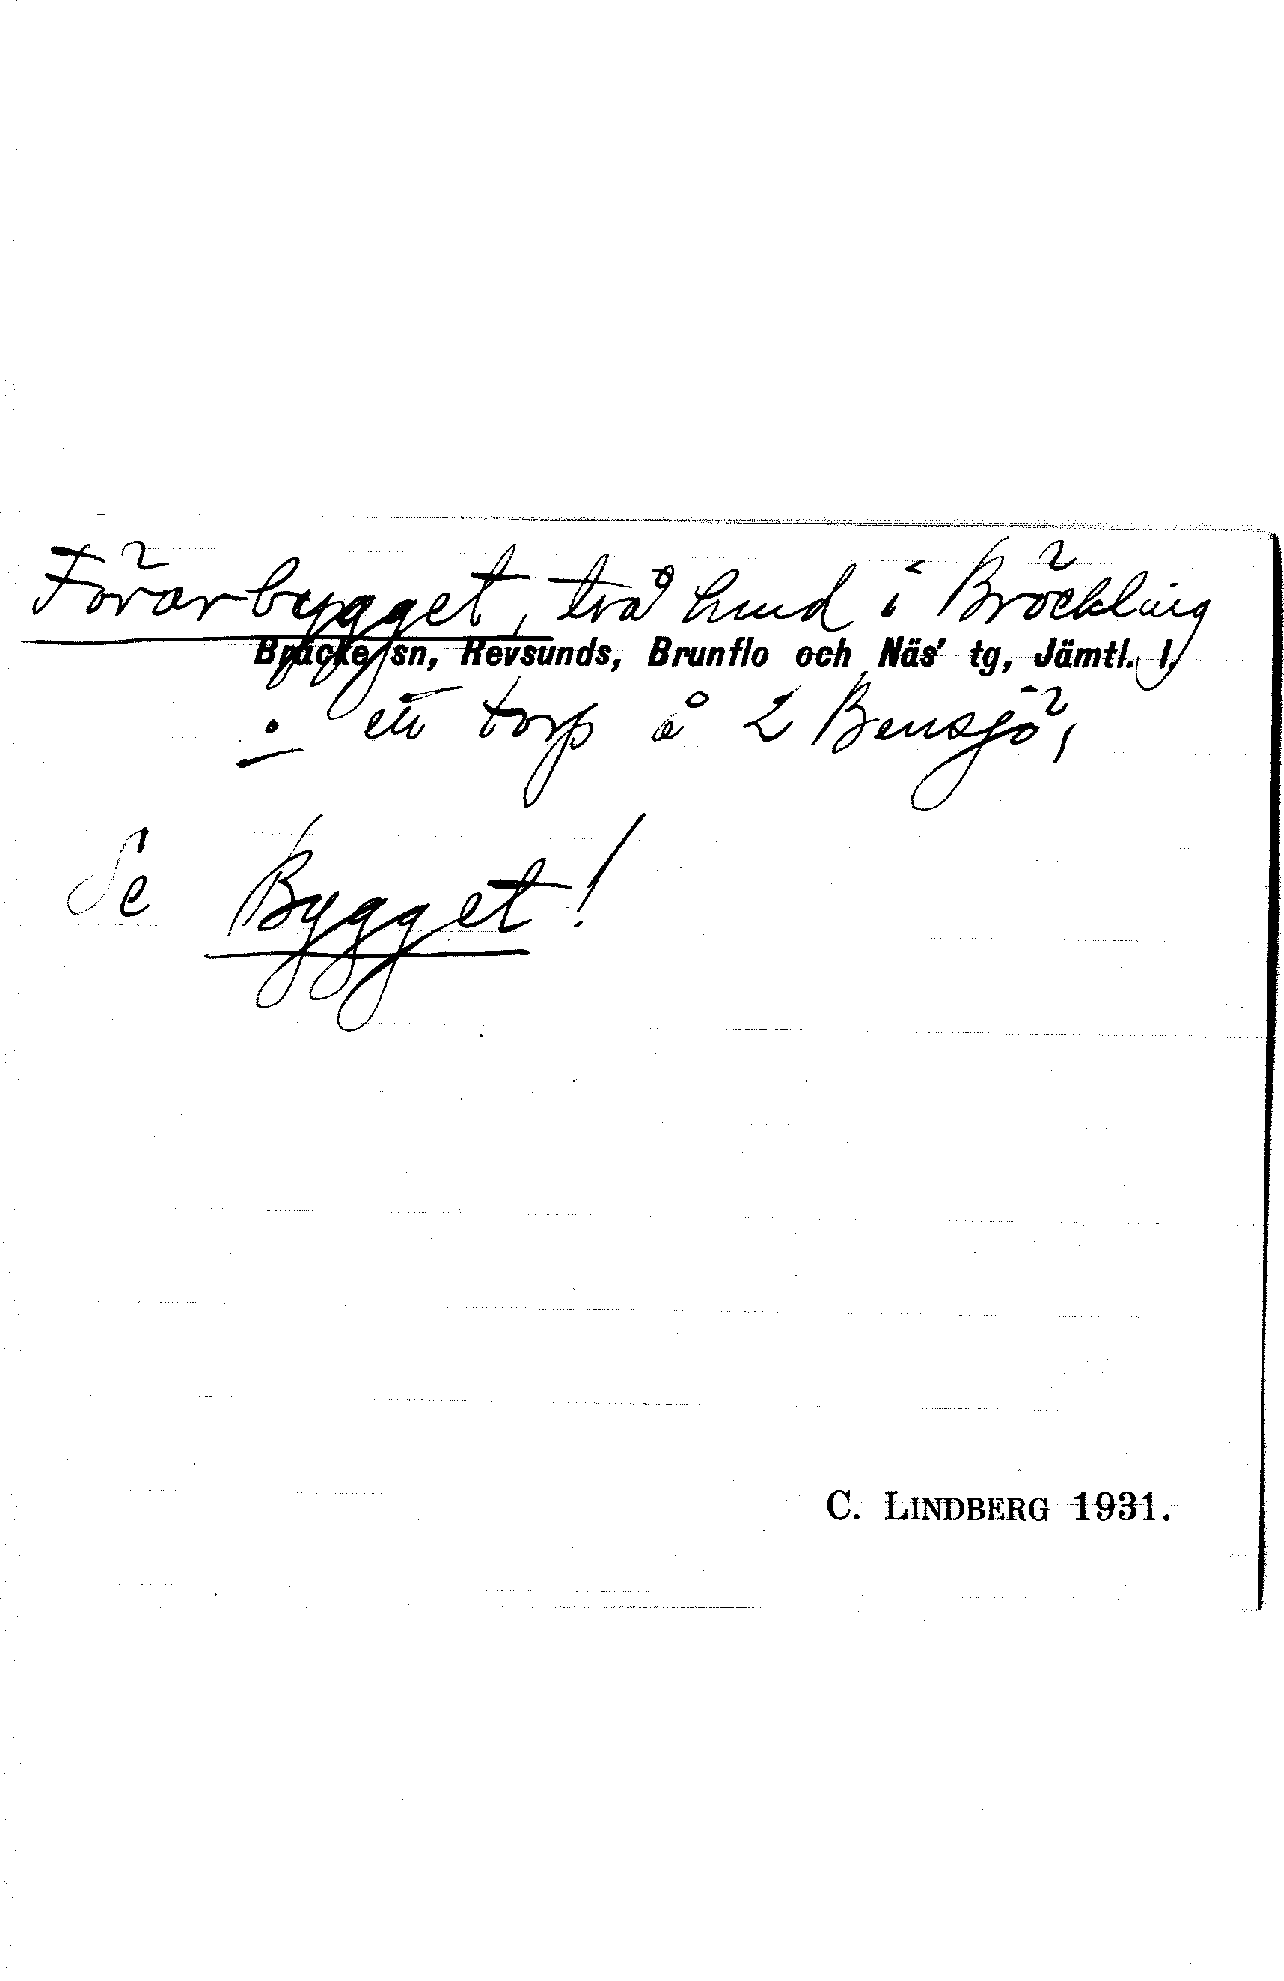 Förarbygget, två hund i Bröckling
Bräcke sn, Revsunds, Brunflo och Näs' tg, Jämtl. l.
ett torp å 2 Bensjö,
Se Bygget!
C. LINDBERG 1931.